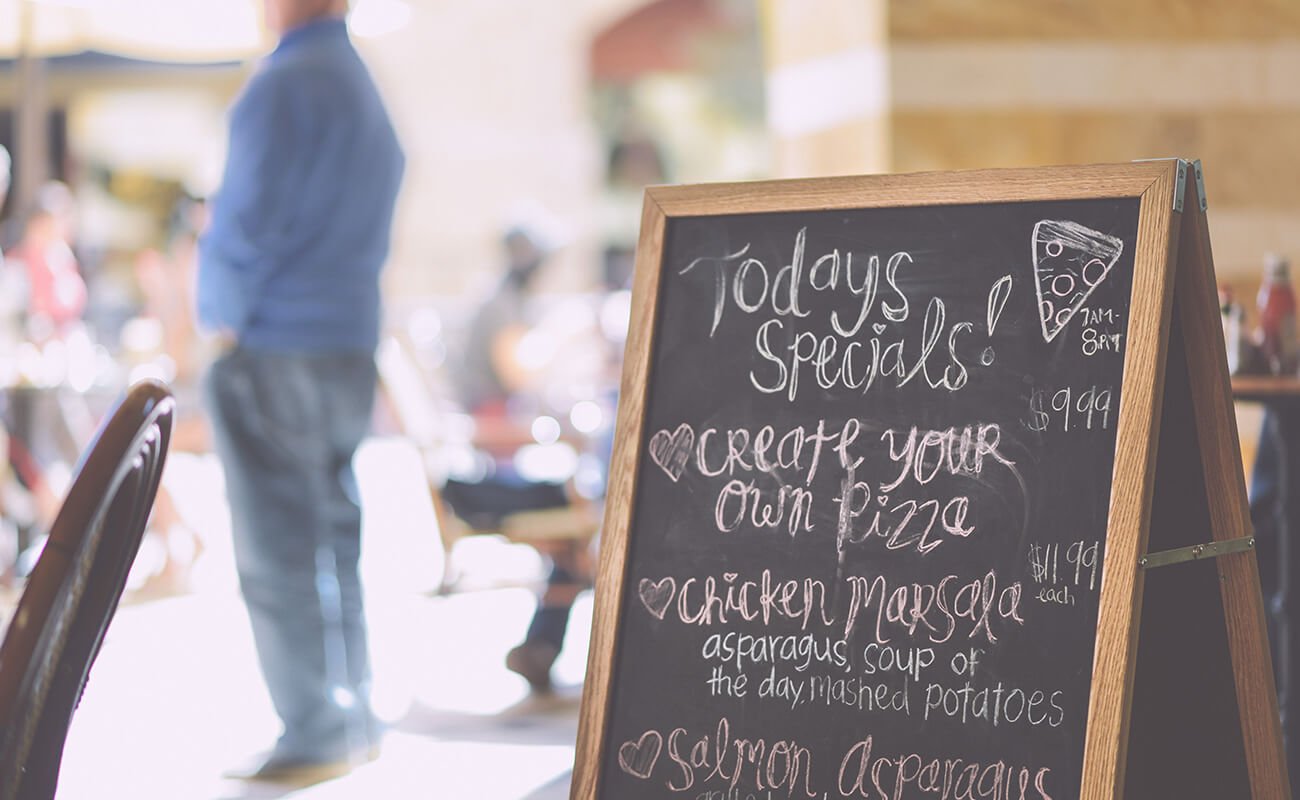 Todays
Specials!
7AM-
8PM
$9.99
Create your
Own Pizza
$11.99
each
Chicken Marsala
asparagus, soup of
the day, mashed potatoes
Salmon, asparagus